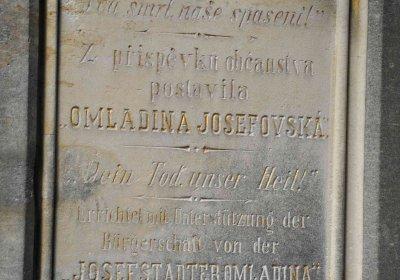 smrt, naše spasení!"
Z příspěvků občanstva
postavila
„OMLADINA JOSEFOVSKÁ."
„Dein Tod, unser Heil!"
Errichtet mit Unterstützung der
Bürgerschaft von der
„JOSEFSTÄDTER OMLADINA"